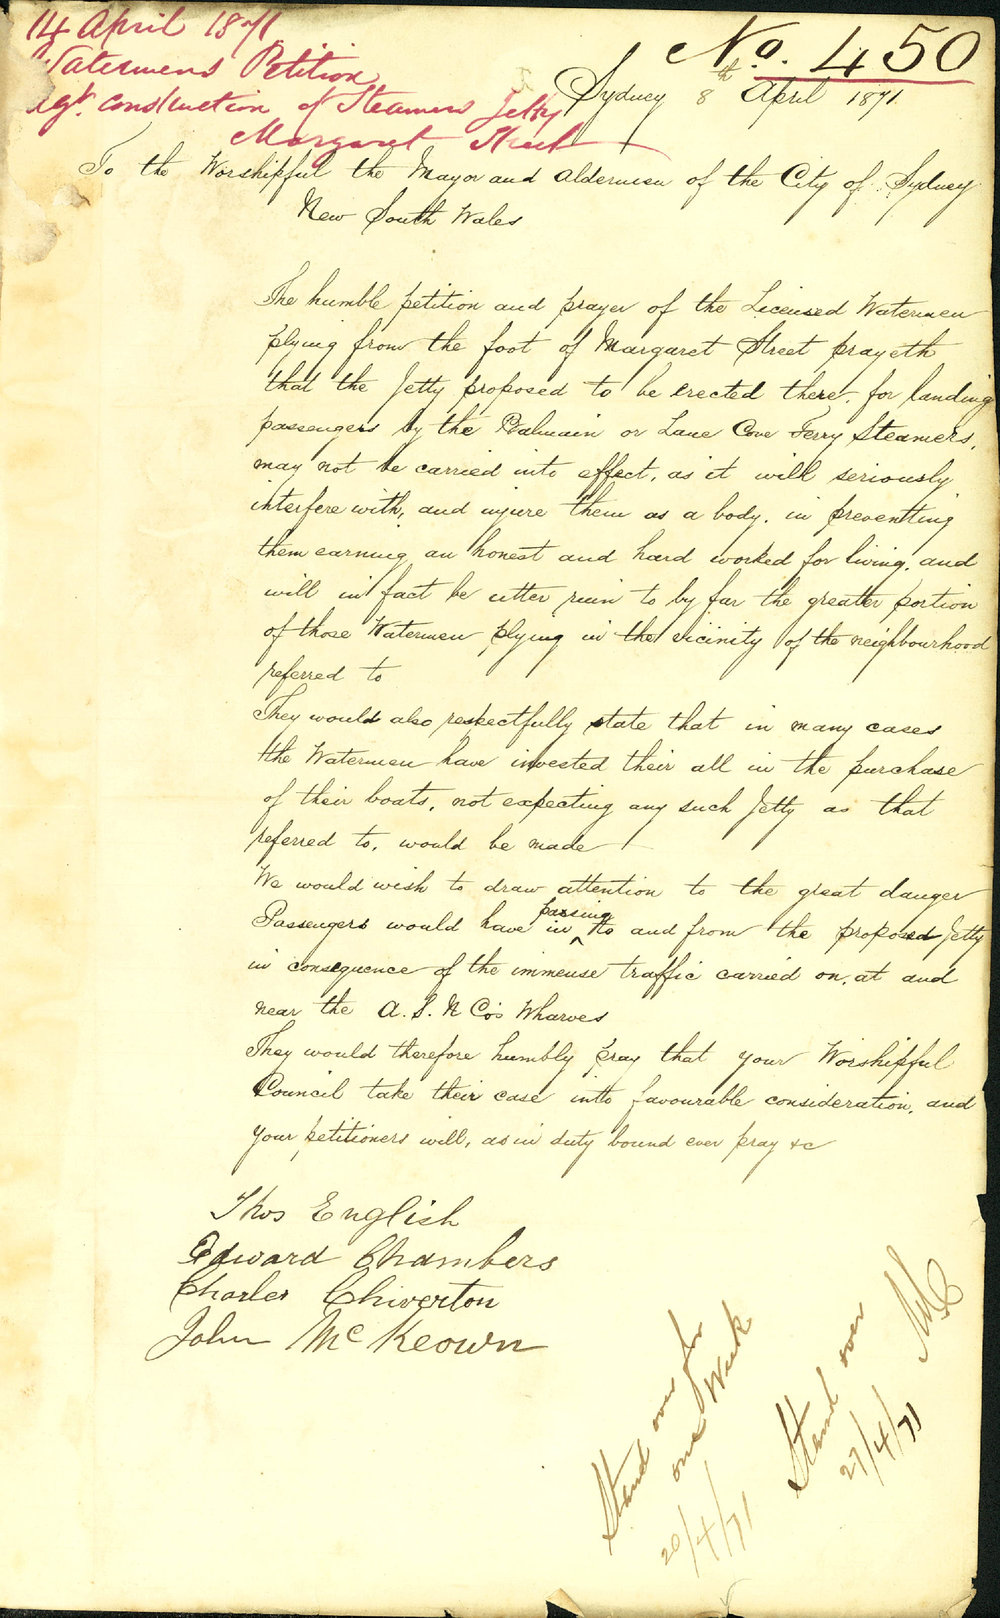 14 April 1871
Watermens Petition
agt. construction of Steamers Jetty
Margaret Street
No. 450
Sydney 8th April 1871.
To the Worshipful the Mayor and Aldermen of the City of Sydney
New South Wales
The humble petition and prayer of the Licensed Watermen
plying from the foot of Margaret Street prayeth
that the Jetty proposed to be erected there, for landing
passengers by the Balmain or Lane Cove Ferry Steamers,
may not be carried into effect, as it will seriously
interfere with, and injure them as a body, in preventing
them earning an honest and hard worked for living, and
will in fact be utter ruin to by far the greater portion
of those Watermen plying in the vicinity of the neighbourhood
referred to
They would also respectfully state that in many cases
the Watermen have invested their all in the purchase
of their boats, not expecting any such Jetty as that
referred to, would be made
We would wish to draw attention to the great danger
Passengers would have in passing to and from the proposed Jetty
in consequence of the immense traffic carried on, at and
near the A. S. N Co's Wharves
They would therefore humbly pray that your Worshipful
Council take their case into favourable consideration, and
your petitioners will, as in duty bound ever pray &c
Thos English
Edward Chambers
Charles Chiverton
John McKeown
Stand over for
one Week
20/4/71
Stand over
27/4/71